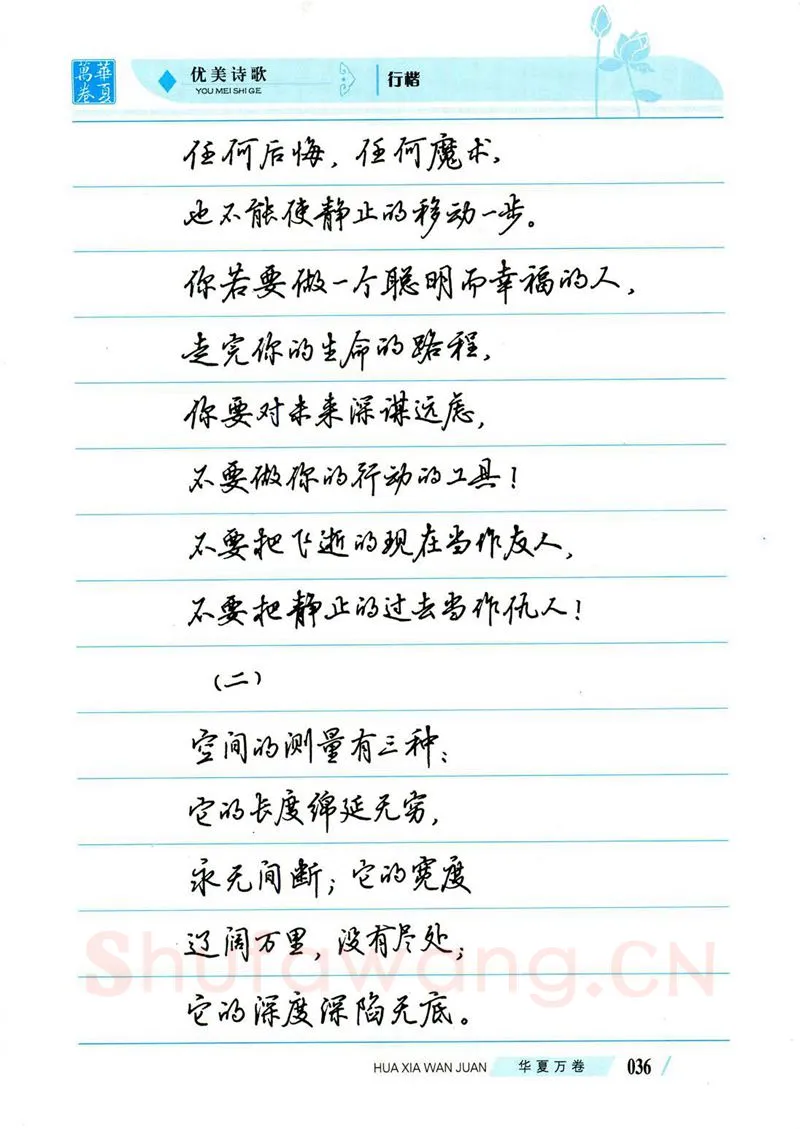 華夏萬卷
优美诗歌
YOU MEI SHI GE
行楷
任何后悔，任何魔术，
也不能使静止的移动一步。
你若要做一个聪明而幸福的人，
走完你的生命的路程，
你要对未来深谋远虑，
不要做你的行动的工具！
不要把飞逝的现在当作友人，
不要把静止的过去当作仇人！
（二）
空间的测量有三种：
它的长度绵延无穷，
永无间断；它的宽度
辽阔万里，没有尽处；
它的深度深陷无底。
Shufawang.CN
HUA XIA WAN JUAN
华夏万卷
036